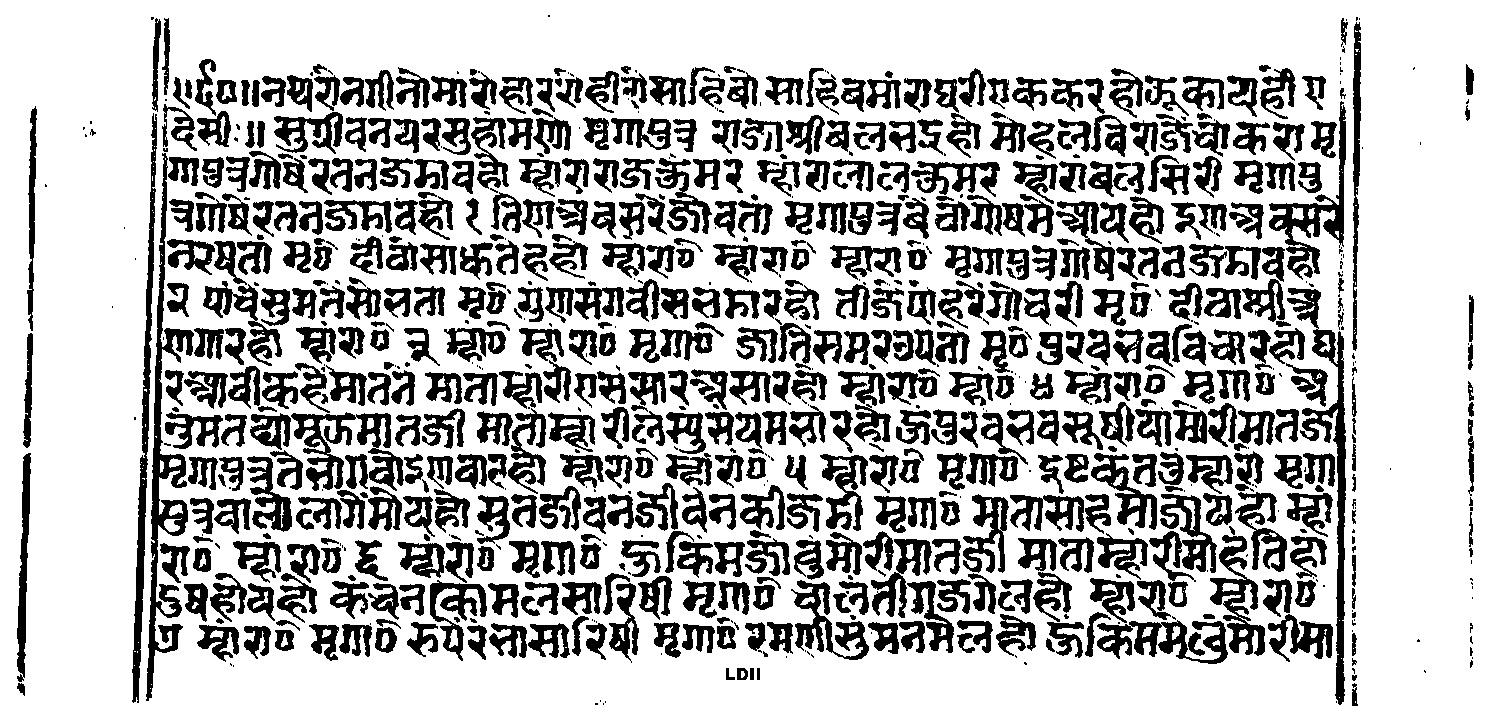 ॥र्द०॥नथरोनगीनोमारोहाररोहीरोसाहिबोसाहिबमांराघरीएककरहोऊकायहो ए
देसी॥ सुग्रीवनयरसुहामणो मृगापुत्र राजाश्रीबलभद्रहो मोहलविराजैबोकरा मृ
गापुत्रगोषेरतनजडावहो म्हाराराजकुमर म्हांरालालकुमर म्हांराबलसिरी मृगापु
त्रगोषेरतनजडावहो १ तिणअवसरेजोवतां मृगापुत्रबैवोगोषमेआयहो इणअवसरे
नरषतां मृ० दीवोसाधुतेहहो म्हांरा० म्हांरा० म्हारा० मृगापुत्रगोषेरतनजडावहो
२ पांचेसुमतेसोभता मृ० गुणसंगवीसभंडारहो तीजेपोहरेगोचरी मृ० दीवाश्रीअ
णगारहो म्हांरा० ३ म्हां० म्हांरा० मृगा० जातिसमरणपतो मृ० पुरवभवविचारहो घ
रआवीकहैमातनें माताम्हांरीएसंसारअसारहो म्हांरा० म्हां० ४ म्हांरा० मृगा० अ
नुमतद्योमूऊमातजी माताम्हांरीलेस्युंसंयमभारहो ऊपुरवभवसूषीयोमोरीमातजी
मृगापुत्रतेभोगवोइणवारहो म्हांरा० म्हांरा० ५ म्हांरा० मृगा० इष्टकंतत्रुंम्हारा मृगा
पुत्रवालोलागैमोयहो सुतजीवनजीवनकीजडी मृगा० मातासाहमोजोयहो म्हां
रा० म्हांरा० ६ म्हांरा० मृगा० ऊकिमजोवुमोरीमातजी माताम्हांरीमोहतिहां
दुषहोयहो कंचनकोमलसारिषी मृगा० चालंतीगजगेलहो म्हांरा० म्हांरा०
७ म्हांरा० मृगा० रुपेरंभासारिषी मृगा० रमणीसुमनमेलहो ऊकिममेलुंमोरीमा
LDII